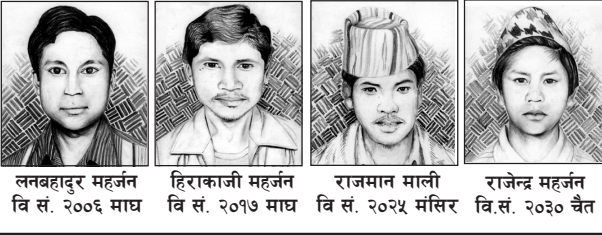 लनबहादुर महर्जन
वि सं. २००६ माघ
हिराकाजी महर्जन
वि सं. २०१७ माघ
राजमान माली
वि सं. २०२५ मंसिर
राजेन्द्र महर्जन
वि.सं. २०३० चैत